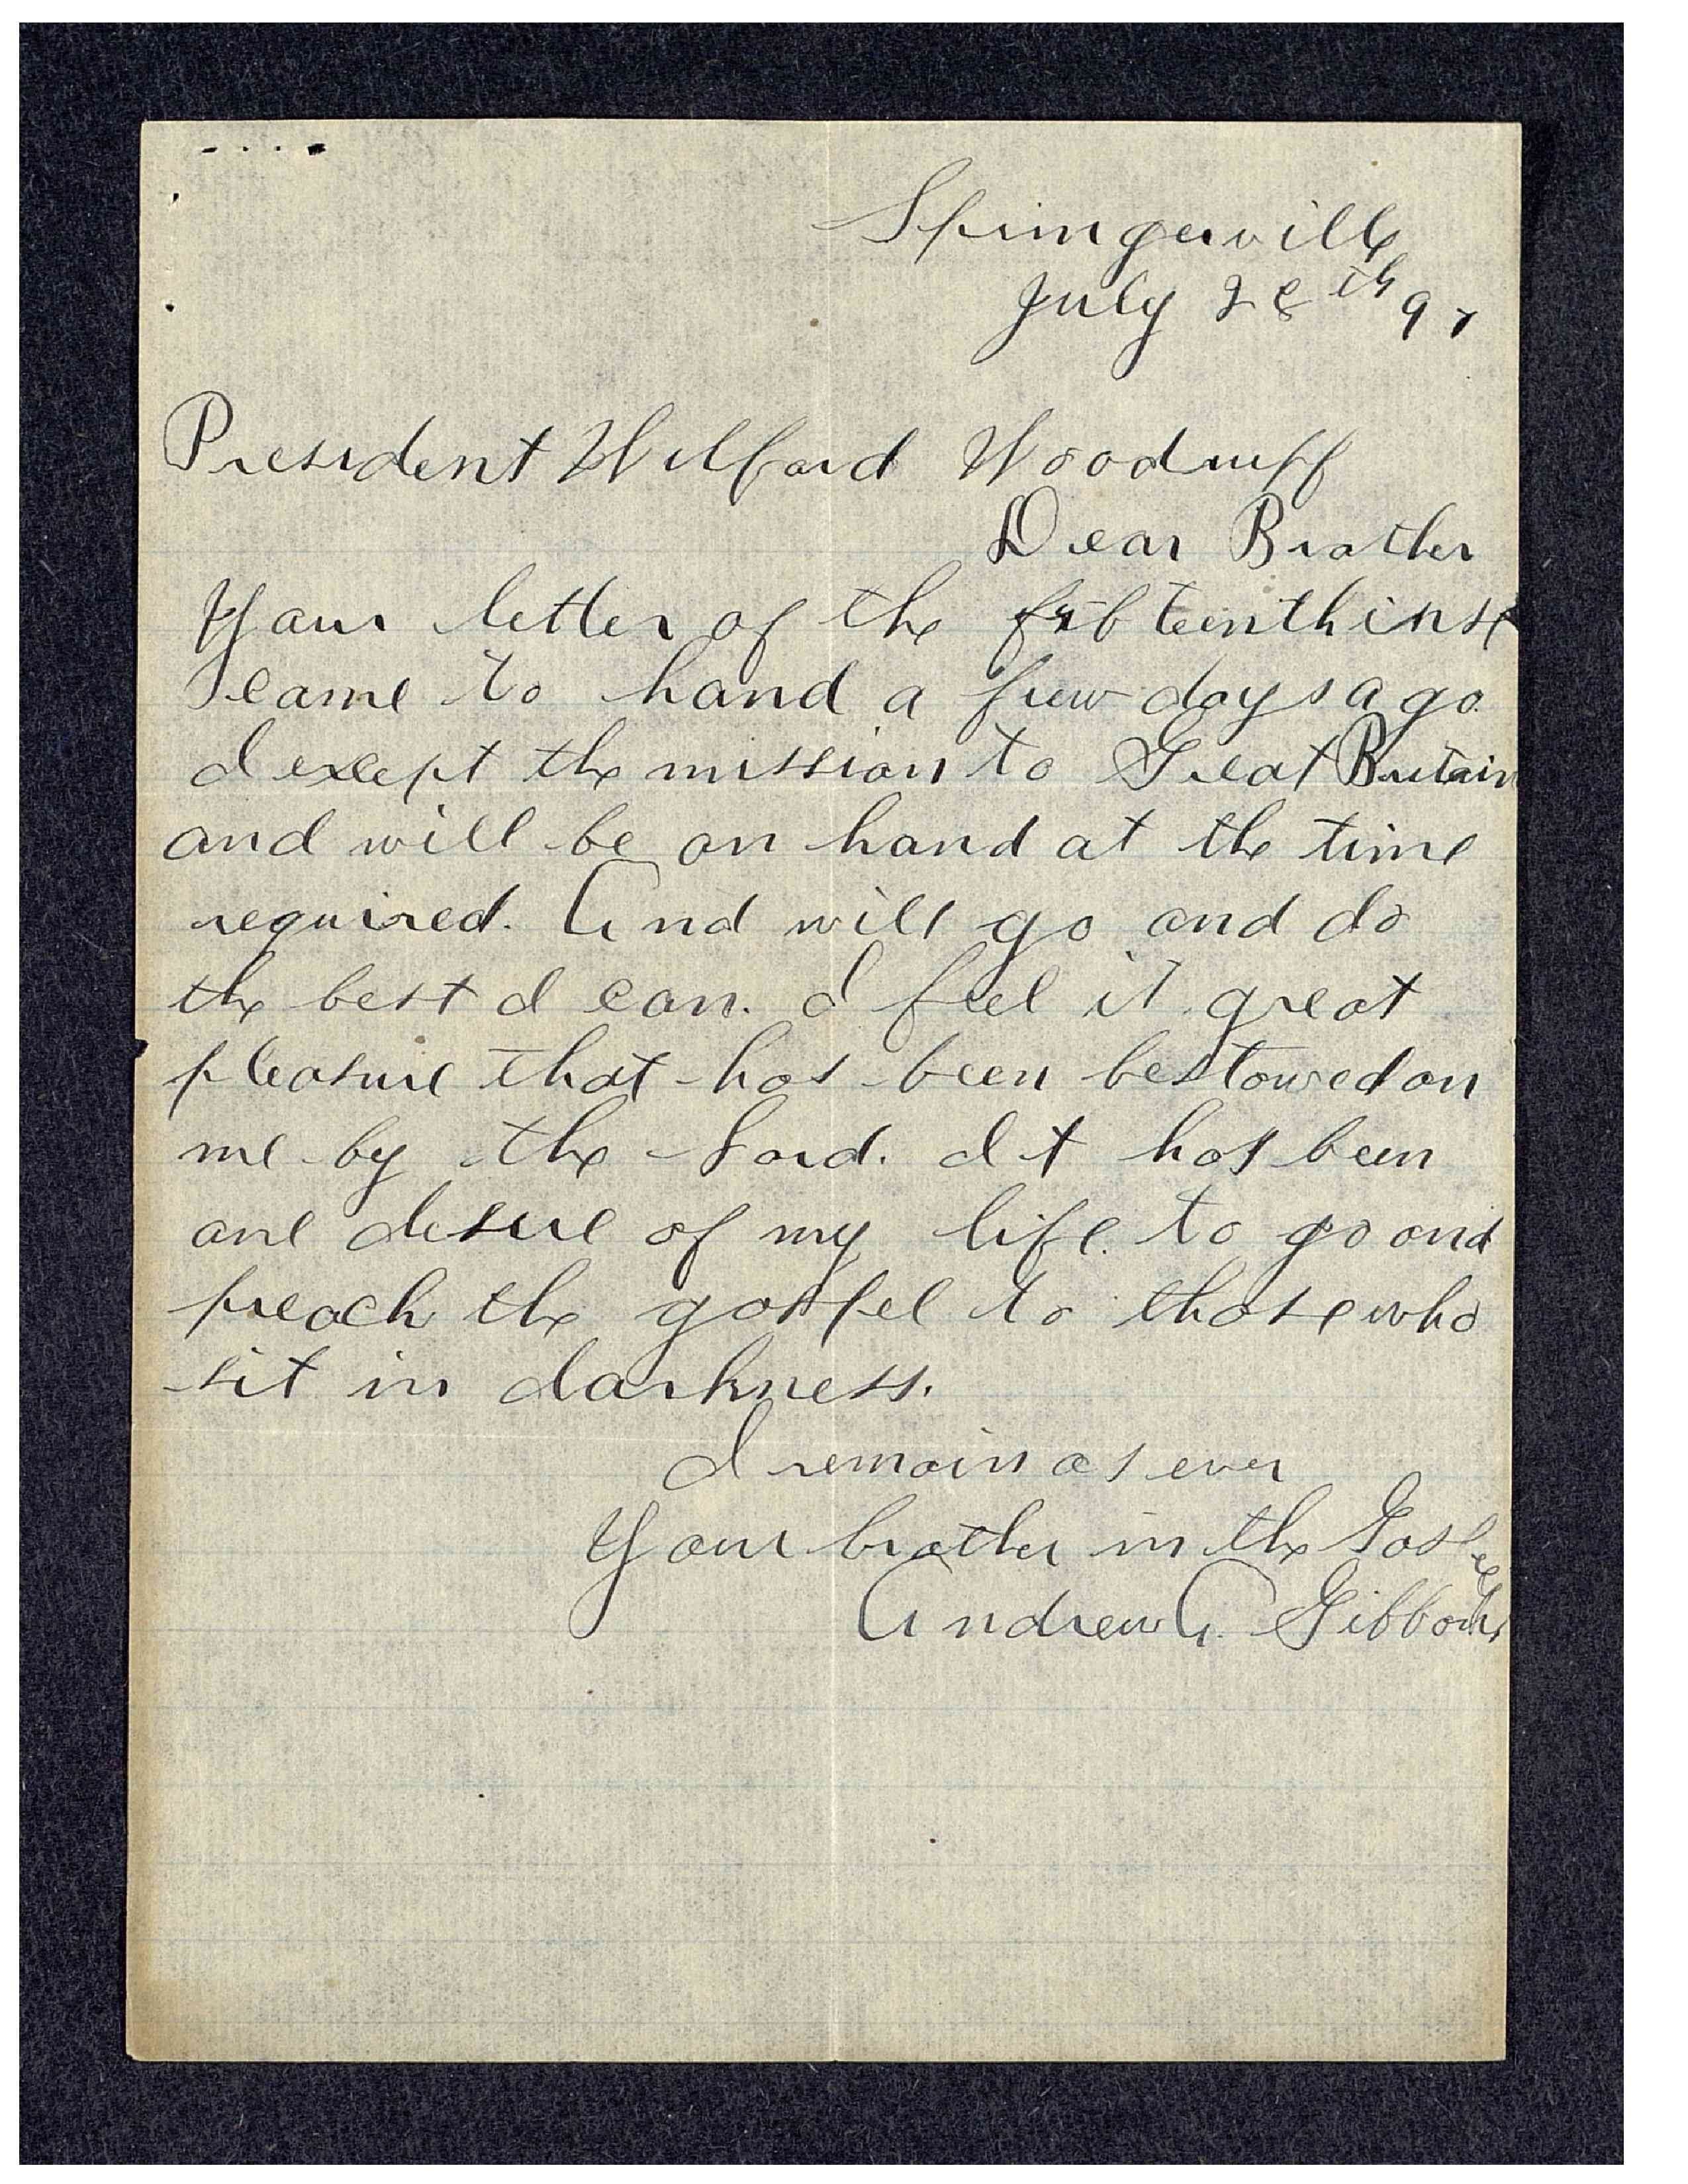 Springerville
July 28th 97
President Wilford Woodruff
Dear Brother
Your letter of the fifteenth inst
came to hand a few days ago
I except the mission to Great Britain
and will be on hand at the time
required. And will go and do
the best I can. I feel it great
pleasure that has been bestowed on
me by the Lord. It has been
one desire of my life. to go and
preach the gospel to those who
sit in darkness.
I remain as ever
Your brother in the Gospel
Andrew A. Gibbons